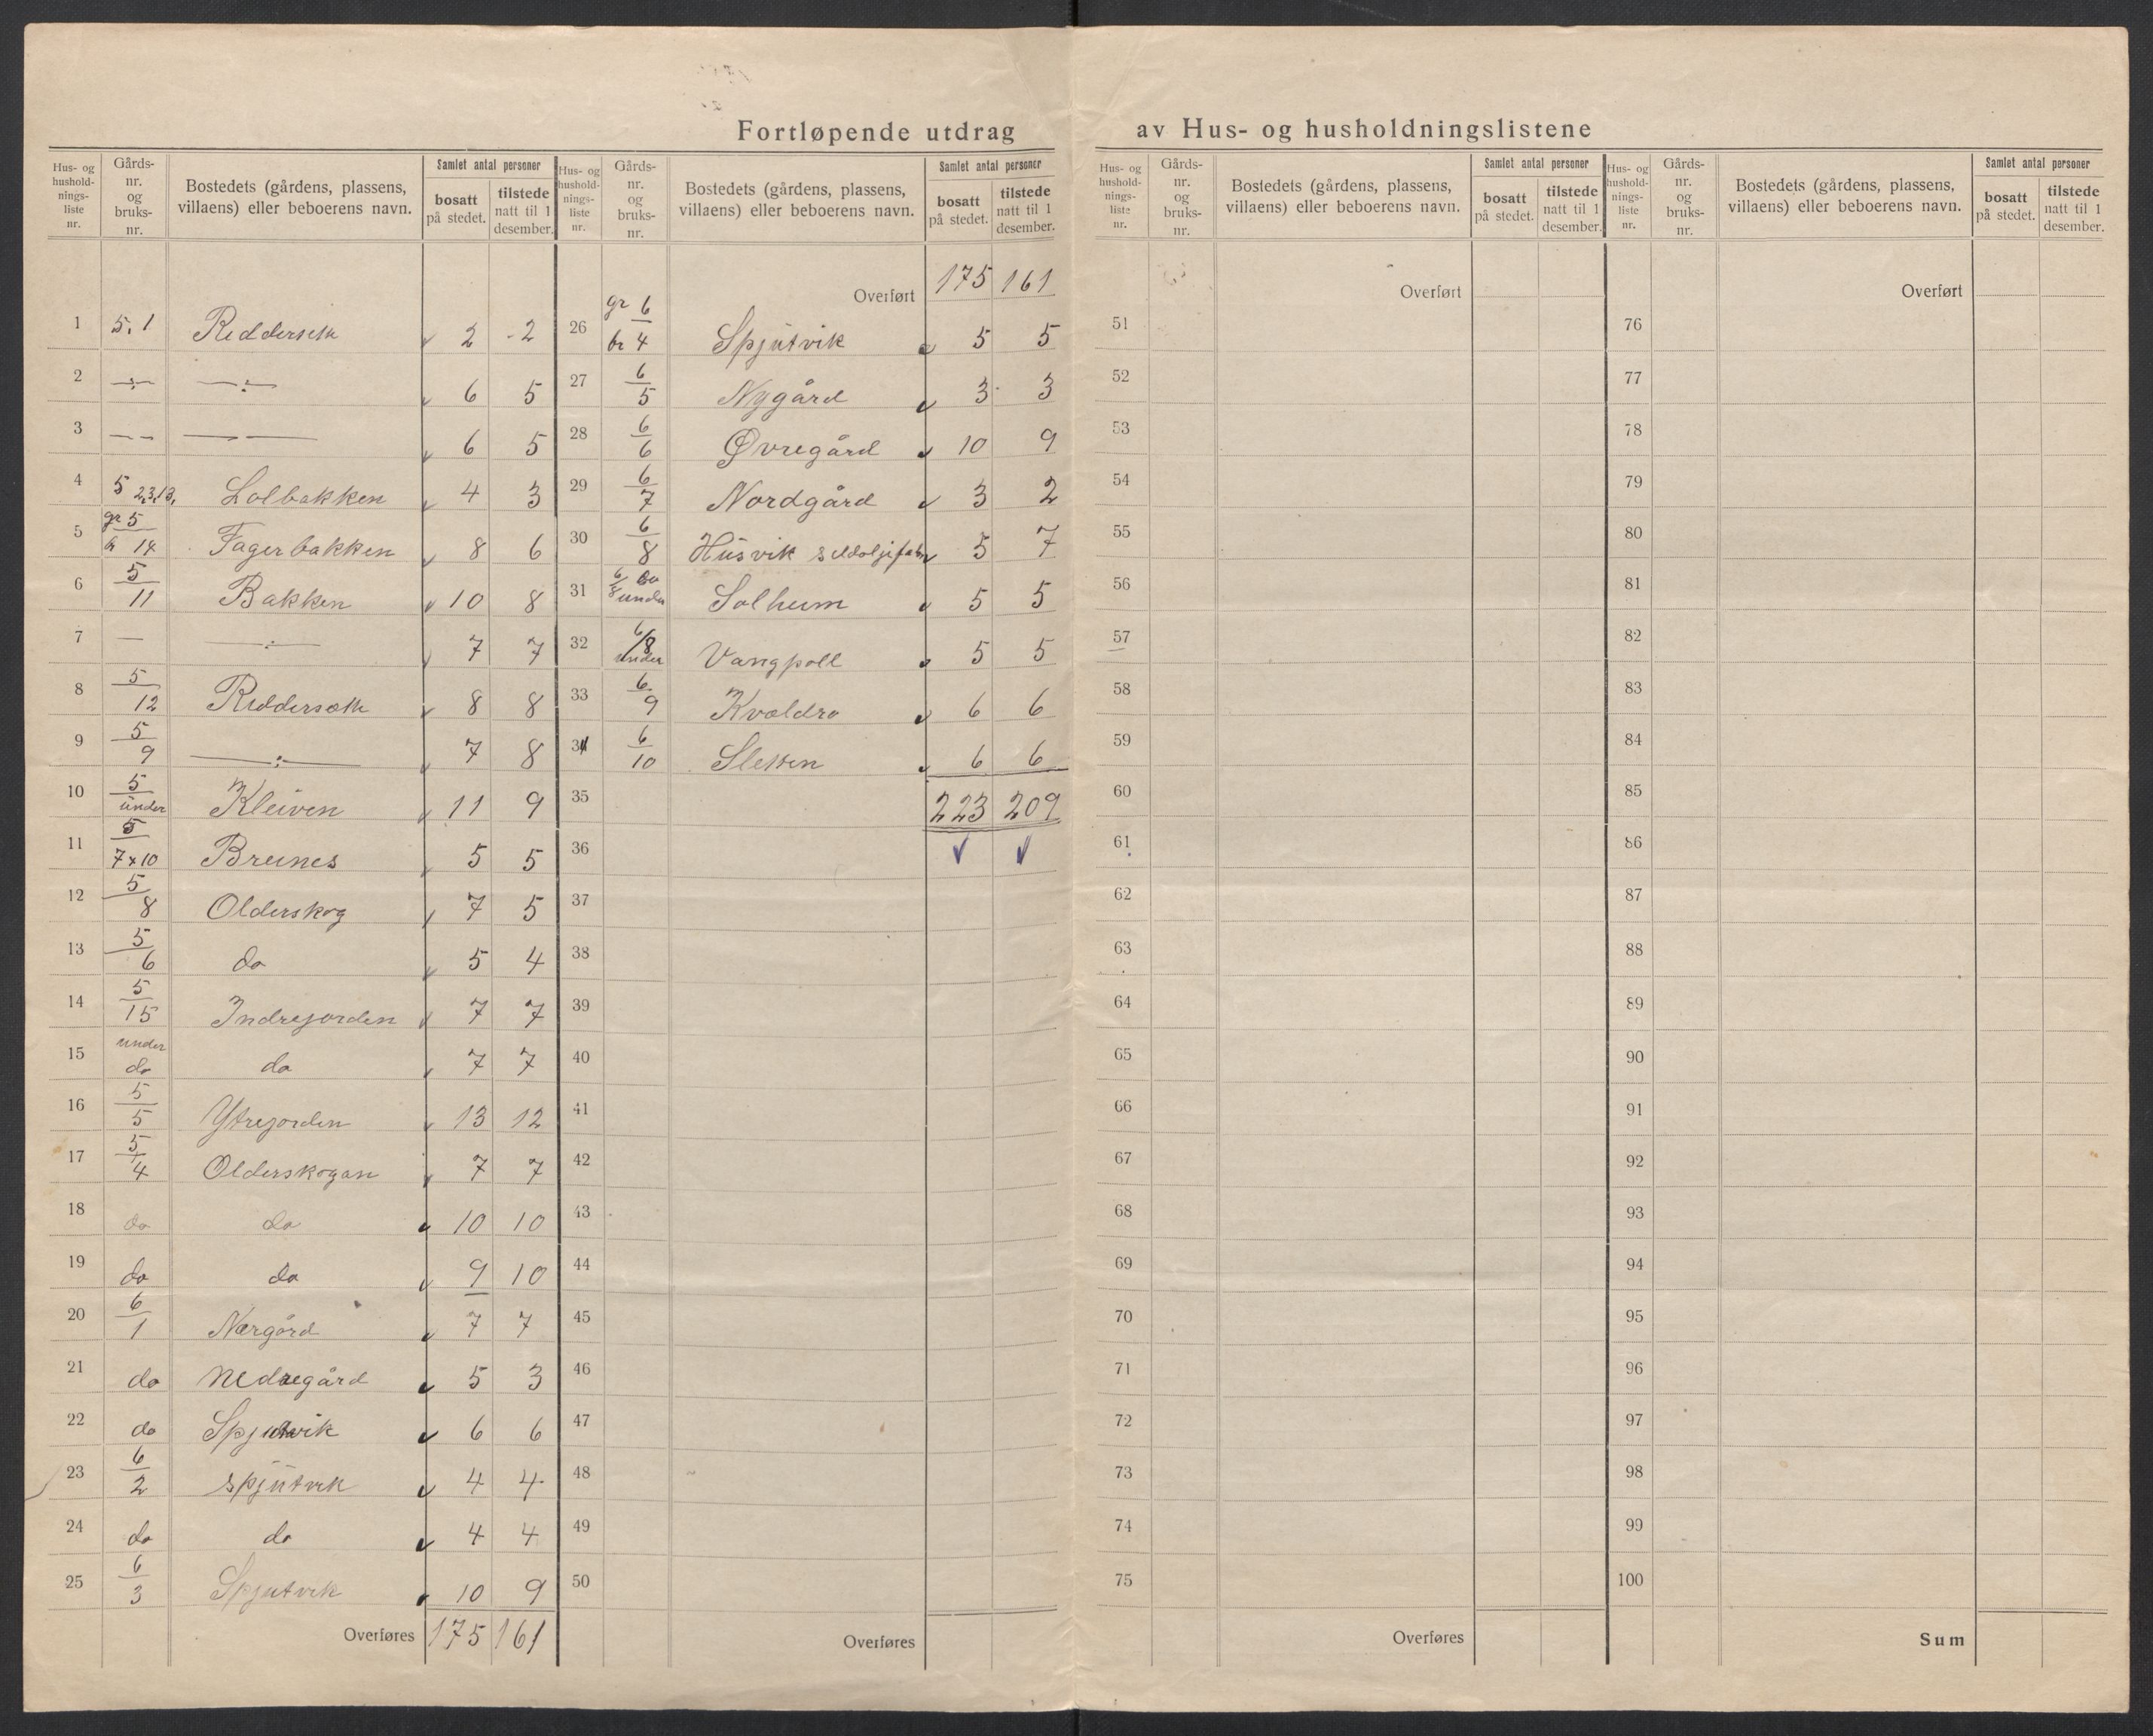 Fortløpende utdrag av Hus- og husholdningslistene
Hus- og hushold-nings-liste nr. | Gårds-nr. og bruks-nr. | Bostedets (gårdens, plassens, villaens) eller beboerens navn. | Samlet antal personer | bosatt på stedet. | tilstede natt til 1 desember.
1 | 5,1 | Riddersetr | 2 | 2
2 | —:— | —:— | 6 | 5
3 | — — | — — | 6 | 5
4 | 5 2,3,13, | Lolbakken | 4 | 3
5 | gr 5 / br 14 | Fagerbakken | 8 | 6
6 | 5/11 | Bakken | 10 | 8
7 | — | —:— | 7 | 7
8 | 5/12 | Riddersætr | 8 | 8
9 | 5/9 | —:— | 7 | 8
10 | 5/under | Kleiven | 11 | 9
11 | 5/7+10 | Breines | 5 | 5
12 | 5/8 | Olderskog | 7 | 5
13 | 5/6 | do | 5 | 4
14 | 5/15 | Indrejorden | 7 | 7
15 | under do | do | 7 | 7
16 | 5/5 | Ytrejorden | 13 | 12
17 | 5/4 | Olderskogan | 7 | 7
18 | do | do | 10 | 10
19 | do | do | 9 | 10
20 | 6/1 | Nærgård | 7 | 7
21 | do | Nedregård | 5 | 3
22 | do | Spjutvik | 6 | 6
23 | 6/2 | Spjutvik | 4 | 4
24 | do | do | 4 | 4
25 | 6/3 | Spjutvik | 10 | 9
Overføres 175 161
Hus- og hushold-nings-liste nr. | Gårds-nr. og bruks-nr. | Bostedets (gårdens, plassens, villaens) eller beboerens navn. | Samlet antal personer | bosatt på stedet. | tilstede natt til 1 desember.
Overført 175 161
26 | gr 6 / br 4 | Spjutvik | 5 | 5
27 | 6/5 | Nygård | 3 | 3
28 | 6/6 | Øvregård | 10 | 9
29 | 6/7 | Nordgård | 3 | 2
30 | 6/8 | Husvik sildoljefabr | 5 | 7
31 | 6/8 under | Solheim | 5 | 5
32 | 6/8 under | Vangpoll | 5 | 5
33 | 6/9 | Kvaldra | 6 | 6
34 | 6/10 | Sletten | 6 | 6
35 | 223 | 209
36
37
38
39
40
41
42
43
44
45
46
47
48
49
50
Overføres
Hus- og hushold-nings-liste nr. | Gårds-nr. og bruks-nr. | Bostedets (gårdens, plassens, villaens) eller beboerens navn. | Samlet antal personer | bosatt på stedet. | tilstede natt til 1 desember.
Overført
51
52
53
54
55
56
57
58
59
60
61
62
63
64
65
66
67
68
69
70
71
72
73
74
75
Overføres
Hus- og hushold-nings-liste nr. | Gårds-nr. og bruks-nr. | Bostedets (gårdens, plassens, villaens) eller beboerens navn. | Samlet antal personer | bosatt på stedet. | tilstede natt til 1 desember.
Overført
76
77
78
79
80
81
82
83
84
85
86
87
88
89
90
91
92
93
94
95
96
97
98
99
100
Sum